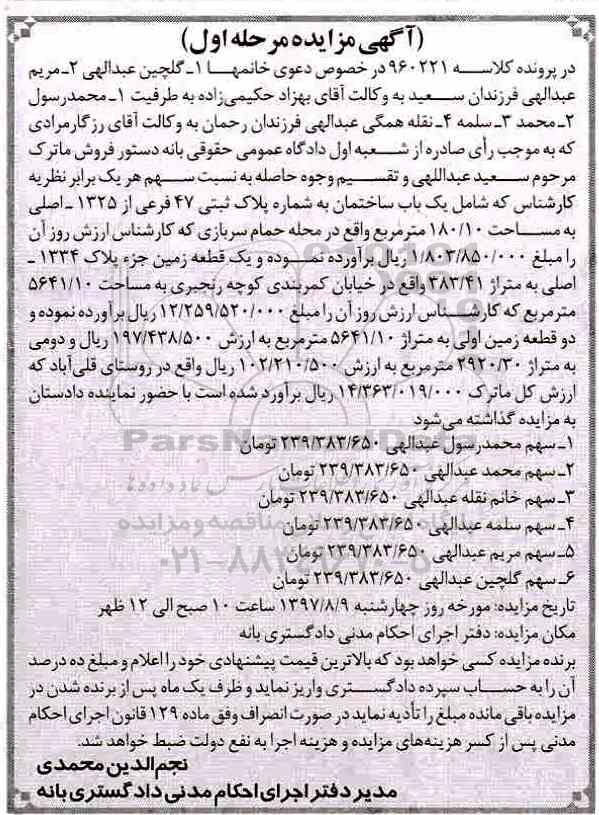 (آگهی مزایده مرحله اول)
در پرونده کلاسه ۹۶۰۲۲۱ در خصوص دعوی خانمها ۱ـ گلچین عبدالهی ۲ـ مریم
عبدالهی فرزندان سعید به وکالت آقای بهزاد حکیمی‌زاده به طرفیت ۱ـ محمدرسول
۲ـ محمد ۳ـ سلمه ۴ـ نقله همگی عبدالهی فرزندان رحمان به وکالت آقای رزگارمرادی
که به موجب رأی صادره از شعبه اول دادگاه عمومی حقوقی بانه دستور فروش ماترک
مرحوم سعید عبداللهی و تقسیم وجوه حاصله به نسبت سهم هر یک برابر نظریه
کارشناس که شامل یک باب ساختمان به شماره پلاک ثبتی ۴۷ فرعی از ۱۳۲۵ ـ اصلی
به مساحت ۱۸۰/۱۰ مترمربع واقع در محله حمام سربازی که کارشناس ارزش روز آن
را مبلغ ۱/۸۰۳/۸۵۰/۰۰۰ ریال برآورده نموده و یک قطعه زمین جزء پلاک ۱۳۳۴ ـ
اصلی به متراژ ۳۸۳/۴۱ واقع در خیابان کمربندی کوچه رنجبری به مساحت ۵۶۴۱/۱۰
مترمربع که کارشناس ارزش روز آن را مبلغ ۱۲/۲۵۹/۵۲۰/۰۰۰ ریال برآورده نموده و
دو قطعه زمین اولی به متراژ ۵۶۴۱/۱۰ مترمربع به ارزش ۱۹۷/۴۳۸/۵۰۰ ریال و دومی
به متراژ ۲۹۲۰/۳۰ مترمربع به ارزش ۱۰۲/۲۱۰/۵۰۰ ریال واقع در روستای قلی‌آباد که
ارزش کل ماترک ۱۴/۳۶۳/۰۱۹/۰۰۰ ریال برآورد شده است با حضور نماینده دادستان
به مزایده گذاشته می‌شود
۱ـ سهم محمدرسول عبدالهی ۲۳۹/۳۸۳/۶۵۰ تومان
۲ـ سهم محمد عبدالهی ۲۳۹/۳۸۳/۶۵۰ تومان
۳ـ سهم خانم نقله عبدالهی ۲۳۹/۳۸۳/۶۵۰ تومان
۴ـ سهم سلمه عبدالهی ۲۳۹/۳۸۳/۶۵۰ تومان
۵ـ سهم مریم عبدالهی ۲۳۹/۳۸۳/۶۵۰ تومان
۶ـ سهم گلچین عبدالهی ۲۳۹/۳۸۳/۶۵۰ تومان
تاریخ مزایده: مورخه روز چهارشنبه ۱۳۹۷/۸/۹ ساعت ۱۰ صبح الی ۱۲ ظهر
مکان مزایده: دفتر اجرای احکام مدنی دادگستری بانه
برنده مزایده کسی خواهد بود که بالاترین قیمت پیشنهادی خود را اعلام و مبلغ ده درصد
آن را به حساب سپرده دادگستری واریز نماید و ظرف یک ماه پس از برنده شدن در
مزایده باقی مانده مبلغ را تأدیه نماید در صورت انصراف وفق ماده ۱۲۹ قانون اجرای احکام
مدنی پس از کسر هزینه‌های مزایده و هزینه اجرا به نفع دولت ضبط خواهد شد.
نجم‌الدین محمدی
مدیر دفتر اجرای احکام مدنی دادگستری بانه